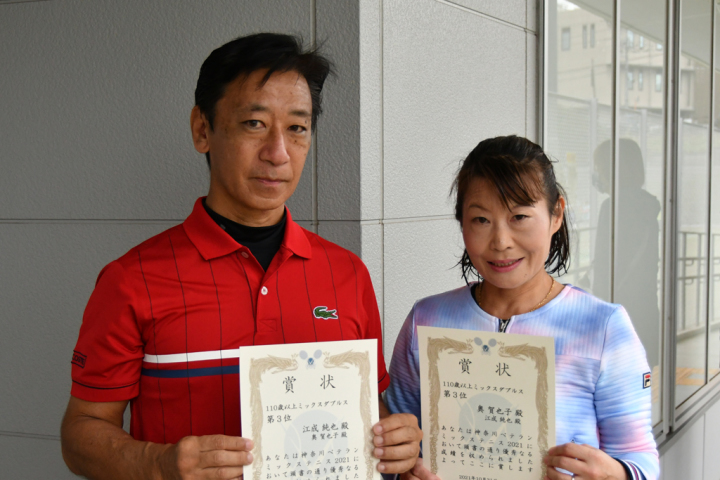 賞状
110歳以上ミックスダブルス
第3位
江成 純也 殿
奥 賀也子 殿
あなたは神奈川ベテラン
ミックステニス2021に
おいて頭書の通り優秀なる
賞状
110歳以上ミックスダブルス
第3位
奥 賀也子 殿
江成 純也 殿
あなたは神奈川ベテラン
ミックステニス2021に
おいて頭書の通り優秀なる
成績を収められました
よってここに賞します
FILA